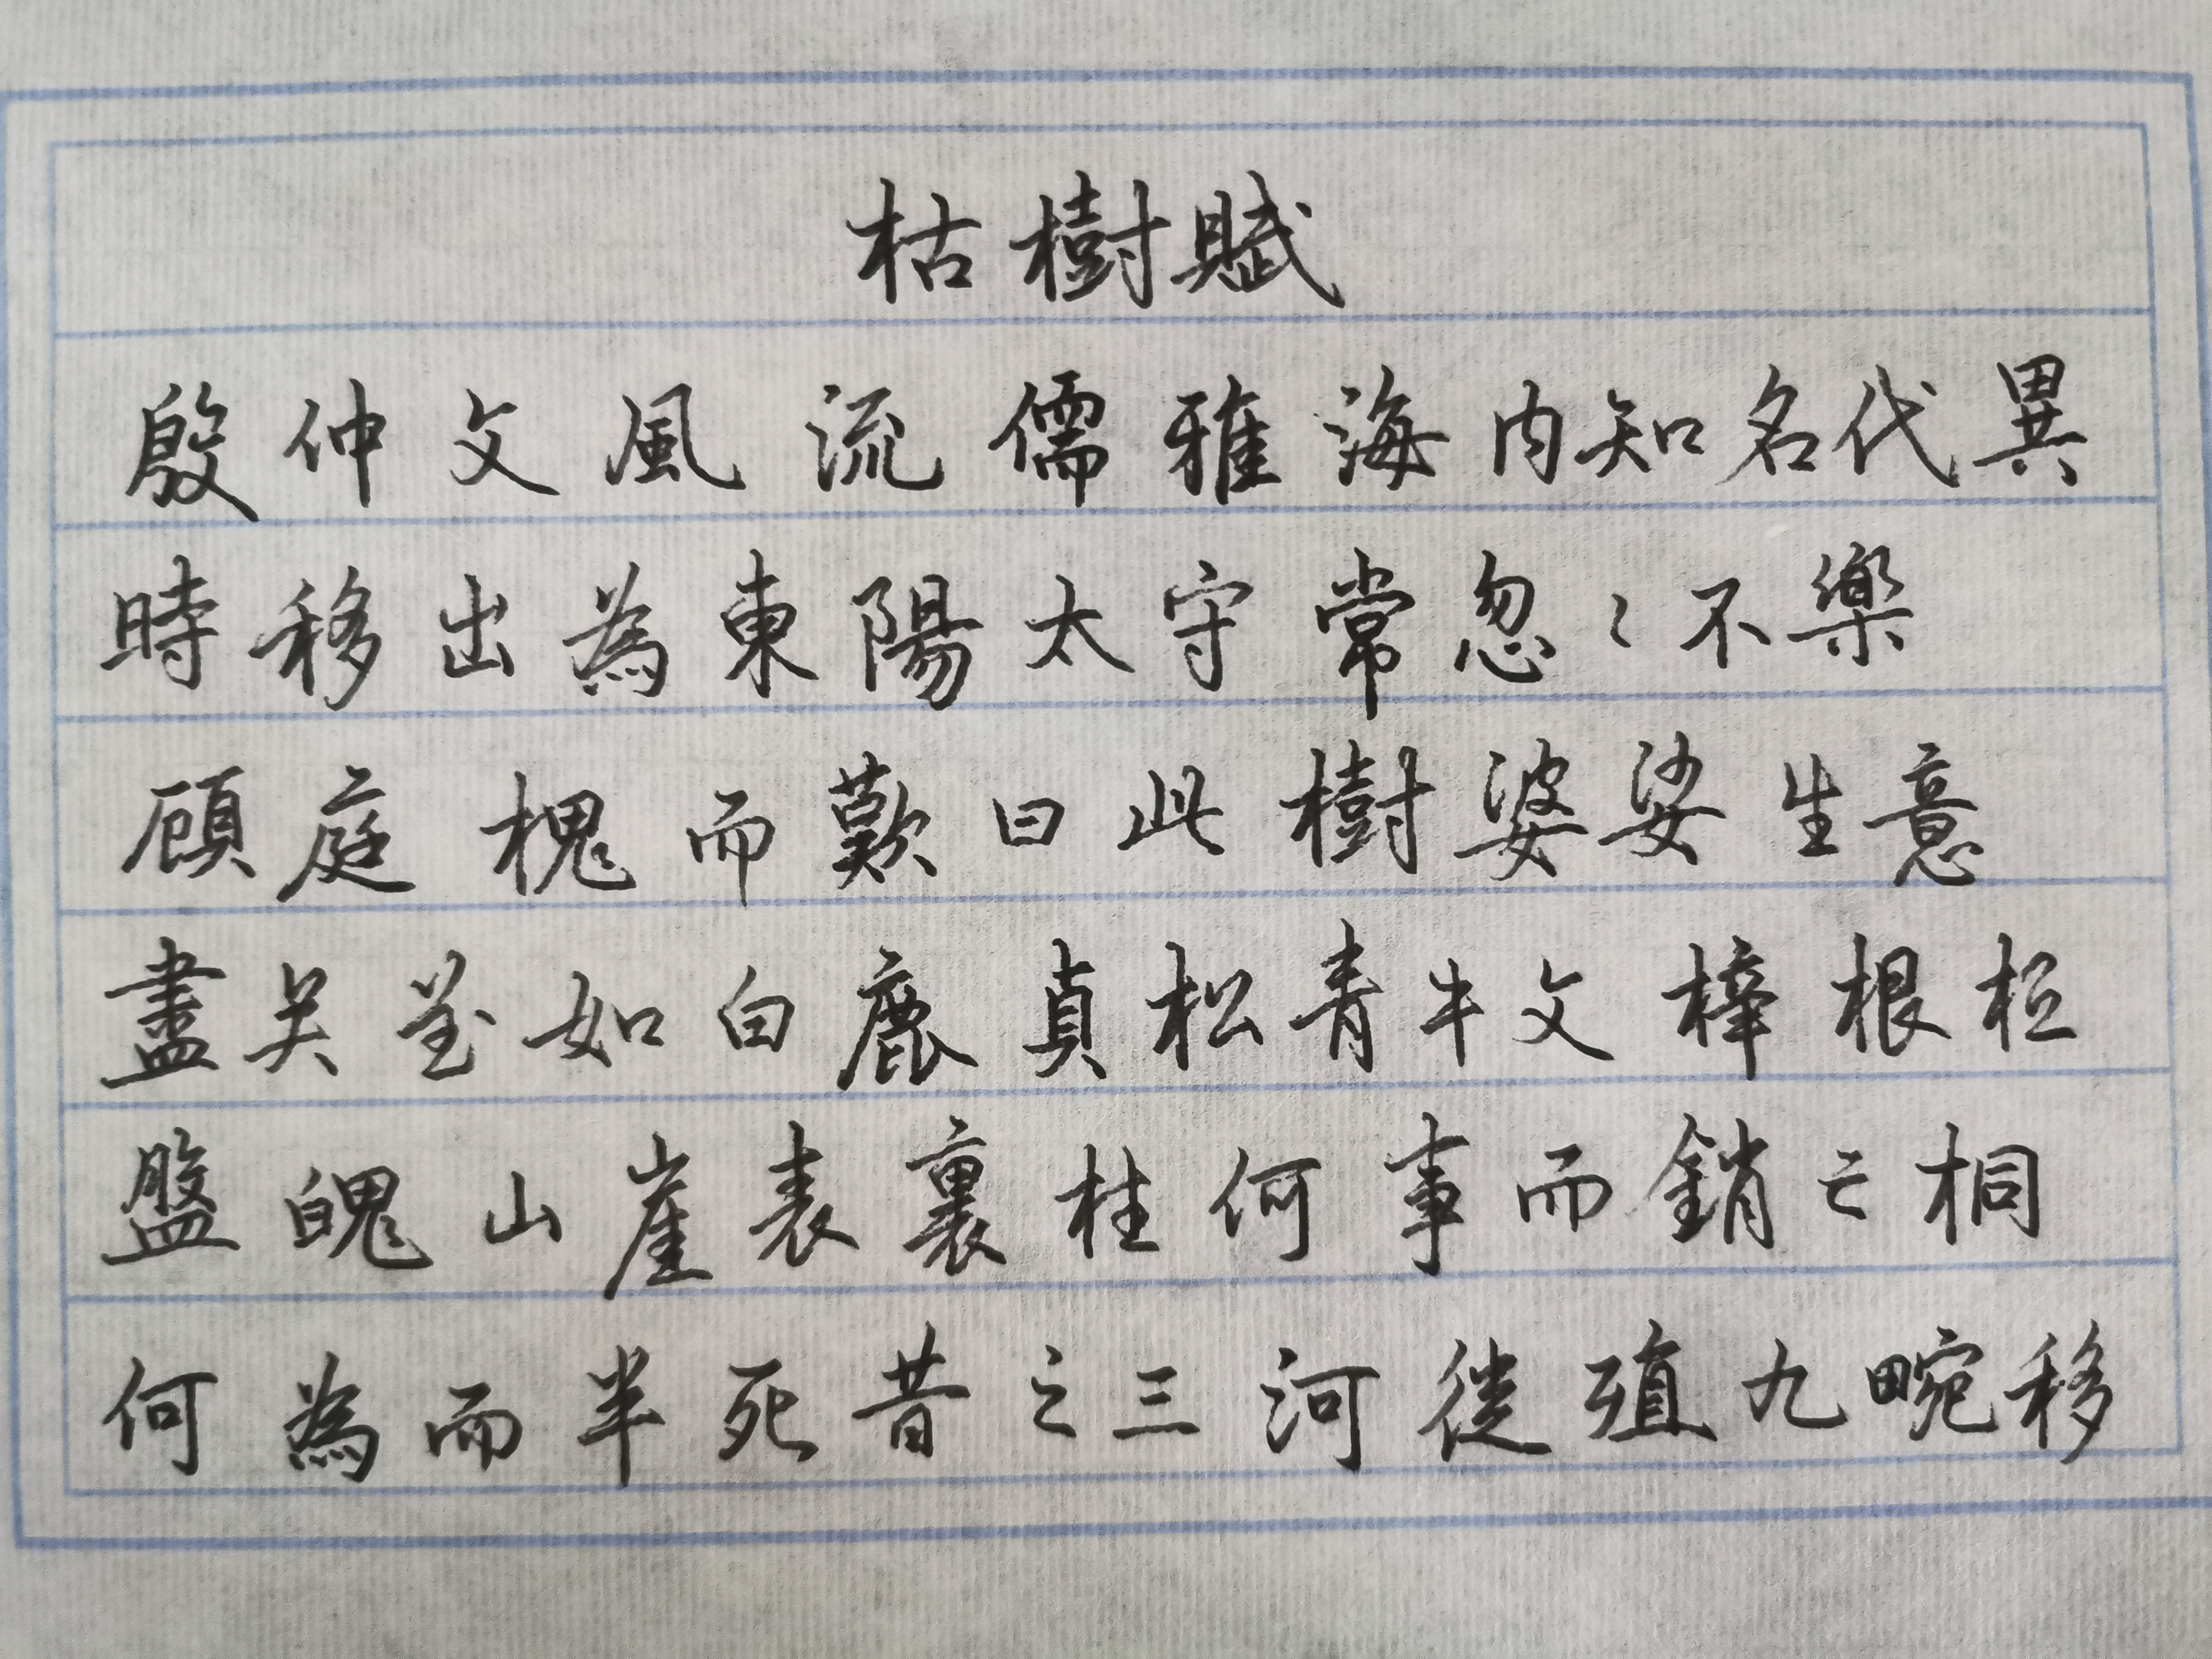 枯樹賦
殷仲文風流儒雅海内知名代異
時移出為東陽太守常忽〻不樂
顧庭槐而歎曰此樹婆娑生意
盡矣至如白鹿貞松青牛文梓根柢
盤魄山崖表裏桂何事而銷亡桐
何為而半死昔之三河徙殖九畹移